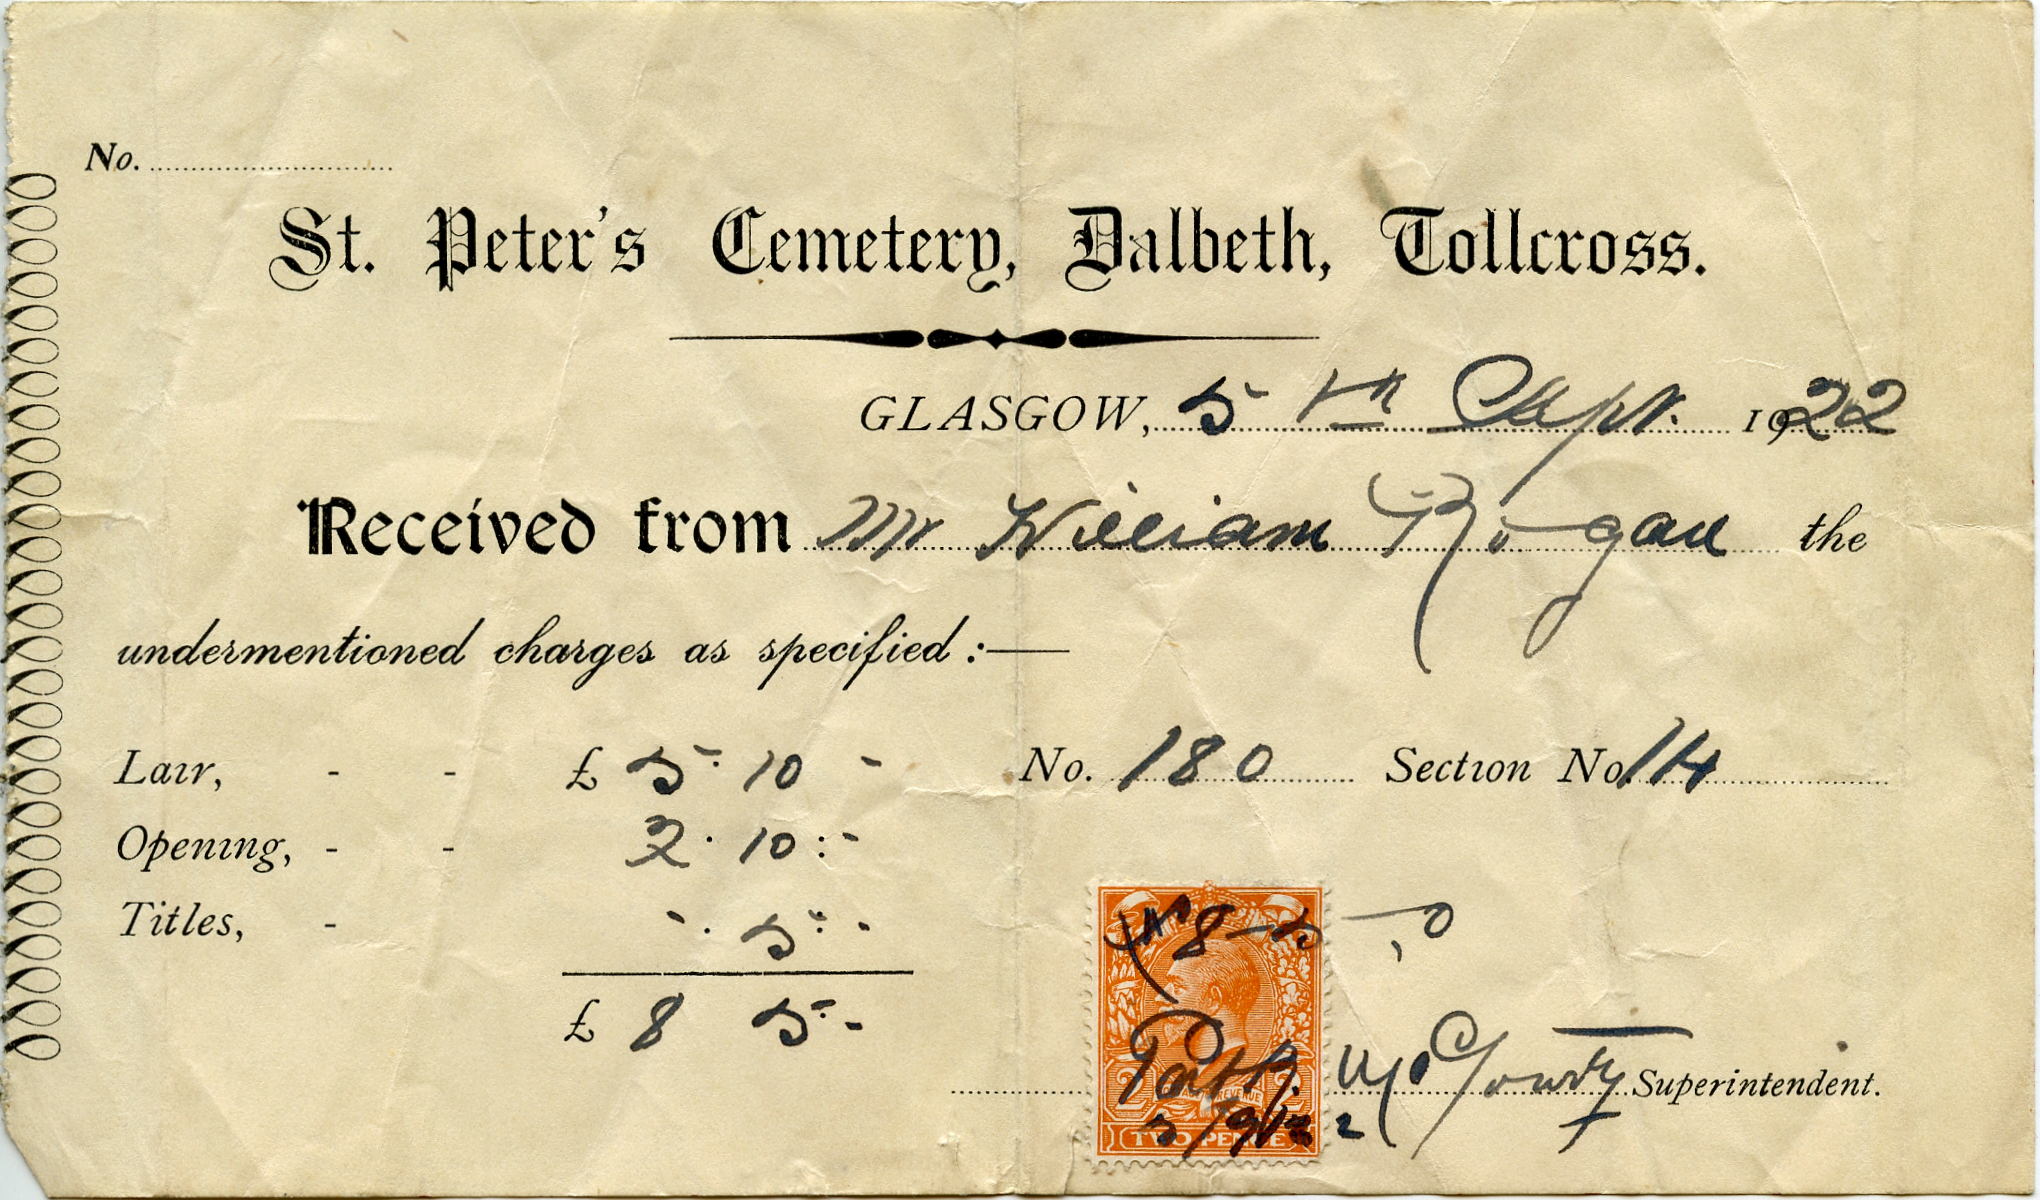 No.
St. Peter's Cemetery, Dalbeth, Tollcross.
GLASGOW, 5th Sept. 1922
Received from Mr William Rogan the
undermentioned charges as specified :—
Lair, - - £ 5 : 10 - No. 180 Section No. 14
Opening, - - 2 . 10 : -
Titles, - - . 5 : -
£ 8 5 : -
£8-5-,0
Patk. Superintendent.
5/9/22
TWO PENCE